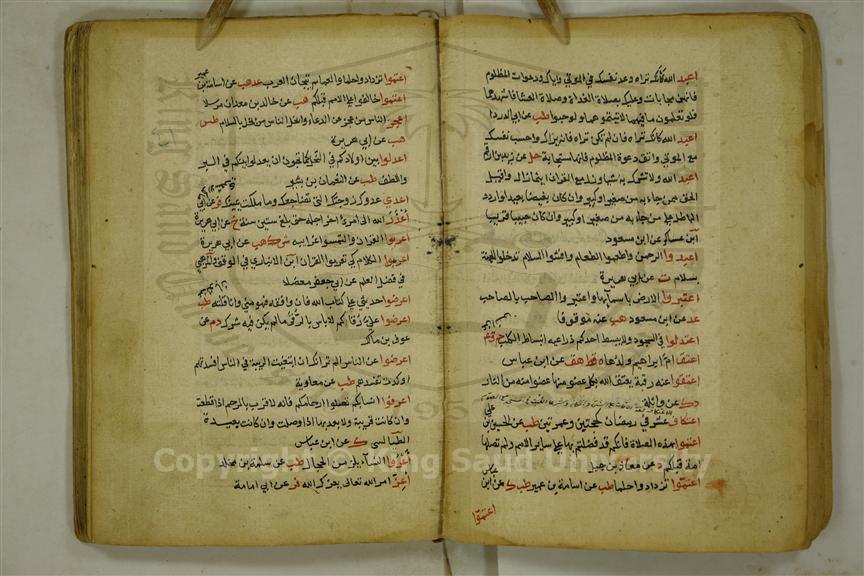 اعبد الله كأنك تراه وعد نفسك في الموتى واياك ودعوات المظلوم
فانهن مجابات وعليك بصلاة الغداة وصلاة العشا فاشهدهما
فلو تعلمون ما فيهما لاتيتموهما ولو حبوا طب عن ابي الدرداء
اعبد الله كانك تراه فان لم تكن تراه فانه يراك واحسب نفسك
مع الموتى واتق دعوة المظلوم فانها مستجابة حل عن زيد بن ارقم
اعبد الله ولا تشرك به شيا وزل مع القران اينما زال واقبل
الحق ممن جاء به من صغير او كبير وان كان بغيضا بعيدا واردد
الباطل على من جاء به من صغير او كبير وان كان حبيبا قريبا
ابن عساكر عن ابن مسعود
اعبدوا الرحمن واطعموا الطعام وافشوا السلام تدخلوا الجنة
بسلام ت عن ابي هريرة
اعتبروا الارض باسمائها واعتبروا الصاحب بالصاحب
عد عن ابن مسعود هب عنه موقوفا
اعتدلوا في السجود ولا يبسط احدكم ذراعيه انبساط الكلب
اعتق ام ابراهيم ولدها ه قط هق عن ابن عباس
اعتقوا عنه رقبة يعتق الله بكل عضو منها عضوا منه من النار
د ك عن واثلة
اعتكاف عشر في رمضان كحجتين وعمرتين طب عن الحسين بن علي
اعتموا بهذه الصلاة فانكم قد فضلتم بها على ساير الامم ولم تصلها
امة قبلكم د عن معاذ بن جبل
اعتموا تزدادوا حلما طب عن اسامة بن عمير طب ك عن ابن
اعتموا
اعتموا تزدادوا حلما والعمايم تيجان العرب عد هب عن اسامة بن عمير
اعتموا خالفوا على الامم قبلكم هب عن خالد بن معدان مرسلا
اعجز الناس من عجز عن الدعاء وابخل الناس من بخل بالسلام طس
هب عن ابي هريرة
اعدلوا بين اولادكم في النحل كما تحبون ان يعدلوا بينكم في البر
واللطف طب عن النعمان بن بشير
اعدى عدوك زوجتك التي تضاجعك وما ملكت يمينك فر عن ابي
اعذر الله الى امرئ اخر اجله حتى بلغ ستين سنة خ عن ابي هريرة
اعربوا القران والتمسوا غرايبه ش ك هب عن ابي هريرة
اعربوا الكلام كي تعربوا القران ابن الانباري في الوقف والمرهبي
في فضل العلم عن ابي جعفر معضلا
اعرضوا حديثي على كتاب الله فان وافقه فهو مني وانا قلته طب
اعرضوا علي رقاكم لا باس بالرقى ما لم يكن فيه شرك م د عن
عوف بن مالك
اعرضوا عن الناس الم تر انك ان ابتغيت الريبة في الناس افسدتهم
او كدت تفسدهم طب عن معاوية
اعرفوا انسابكم تصلوا ارحامكم فانه لا قرب بالرحم اذا قطعت
وان كانت قريبة ولا بعد بها اذا وصلت وان كانت بعيدة
الطيالسي ك عن ابن عباس
اعروا النساء يلزمن الحجال طب عن مسلمة بن مخلد
اعز امر الله تعالى يعزك الله فر عن ابي امامة
Copyright © King Saud University